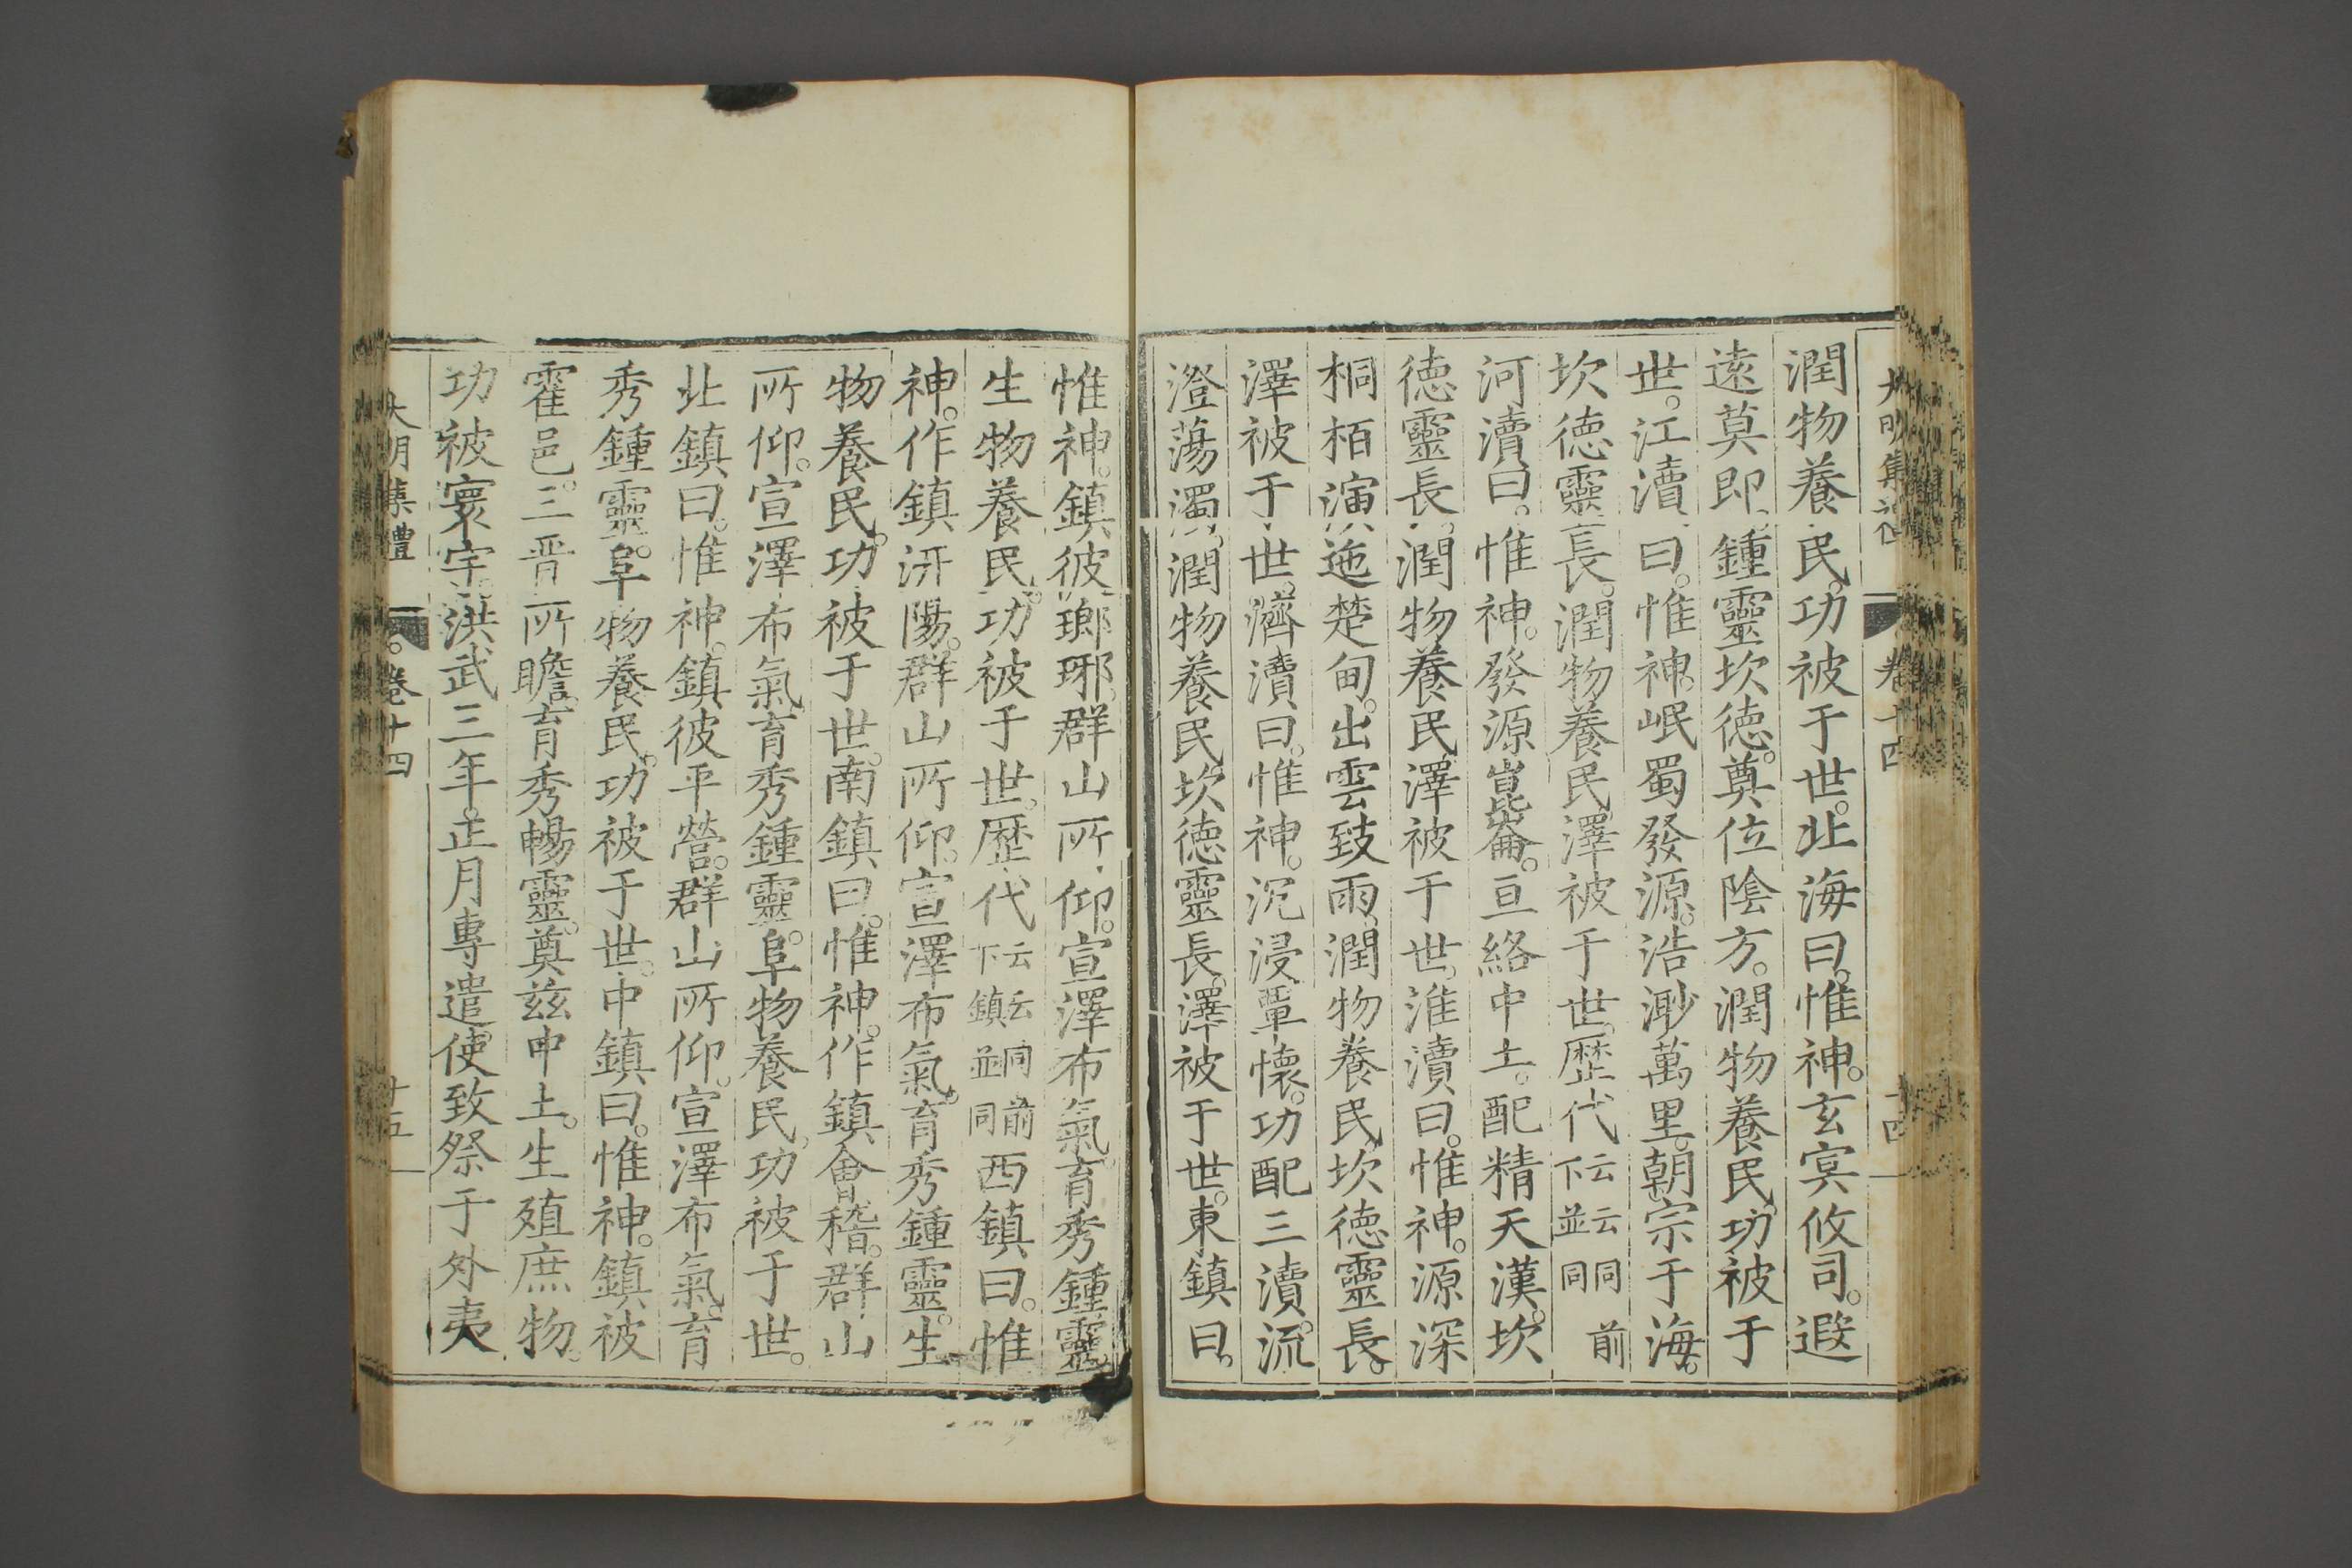 大明集禮 卷十四 十四
潤物養民。功被于世。北海曰。惟神。玄冥攸司。遐
遠莫即。鍾靈坎德。奠位陰方。潤物養民。功被于
世。江瀆曰。惟神。岷蜀發源。浩渺萬里。朝宗于海。
坎德靈長。潤物養民。澤被于世。歷代云云同前下並同
河瀆曰。惟神。發源崑崙。亘絡中土。配精天漢。坎
德靈長。潤物養民。澤被于世。淮瀆曰。惟神。源深
桐栢。演迤楚甸。出雲致雨。潤物養民。坎德靈長。
澤被于世。濟瀆曰。惟神。沉浸覃懷。功配三瀆。流
澄蕩濁。潤物養民。坎德靈長。澤被于世。東鎮曰。
惟神。鎮彼瑯琊。群山所仰。宣澤布氣。育秀鍾靈。
生物養民。功被于世。歷代云云同前下鎮並同西鎮曰。惟
神。作鎮汧陽。群山所仰。宣澤布氣。育秀鍾靈。生
物養民。功被于世。南鎮曰。惟神。作鎮會稽。群山
所仰。宣澤布氣。育秀鍾靈。阜物養民。功被于世。
北鎮曰。惟神。鎮彼平營。群山所仰。宣澤布氣。育
秀鍾靈。阜物養民。功被于世。中鎮曰。惟神。鎮被
霍邑。三晋所瞻。育秀暢靈。奠茲中土。生殖庶物。
功被寰宇。洪武三年。正月專遣使致祭于外夷
大明集禮 卷十四 十五